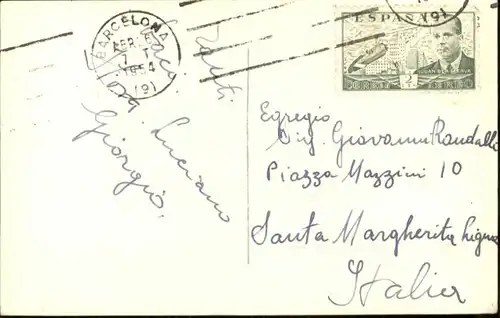 BARCELONA
7
1954
(19)
ESPAÑA
JUAN DE LA CIERVA
2
CORREO AEREO
Luciano
Giorgio.
Egregio
Sig. Giovanni Randallo
Piazza Mazzini 10
Santa Margherita Ligure
Italia